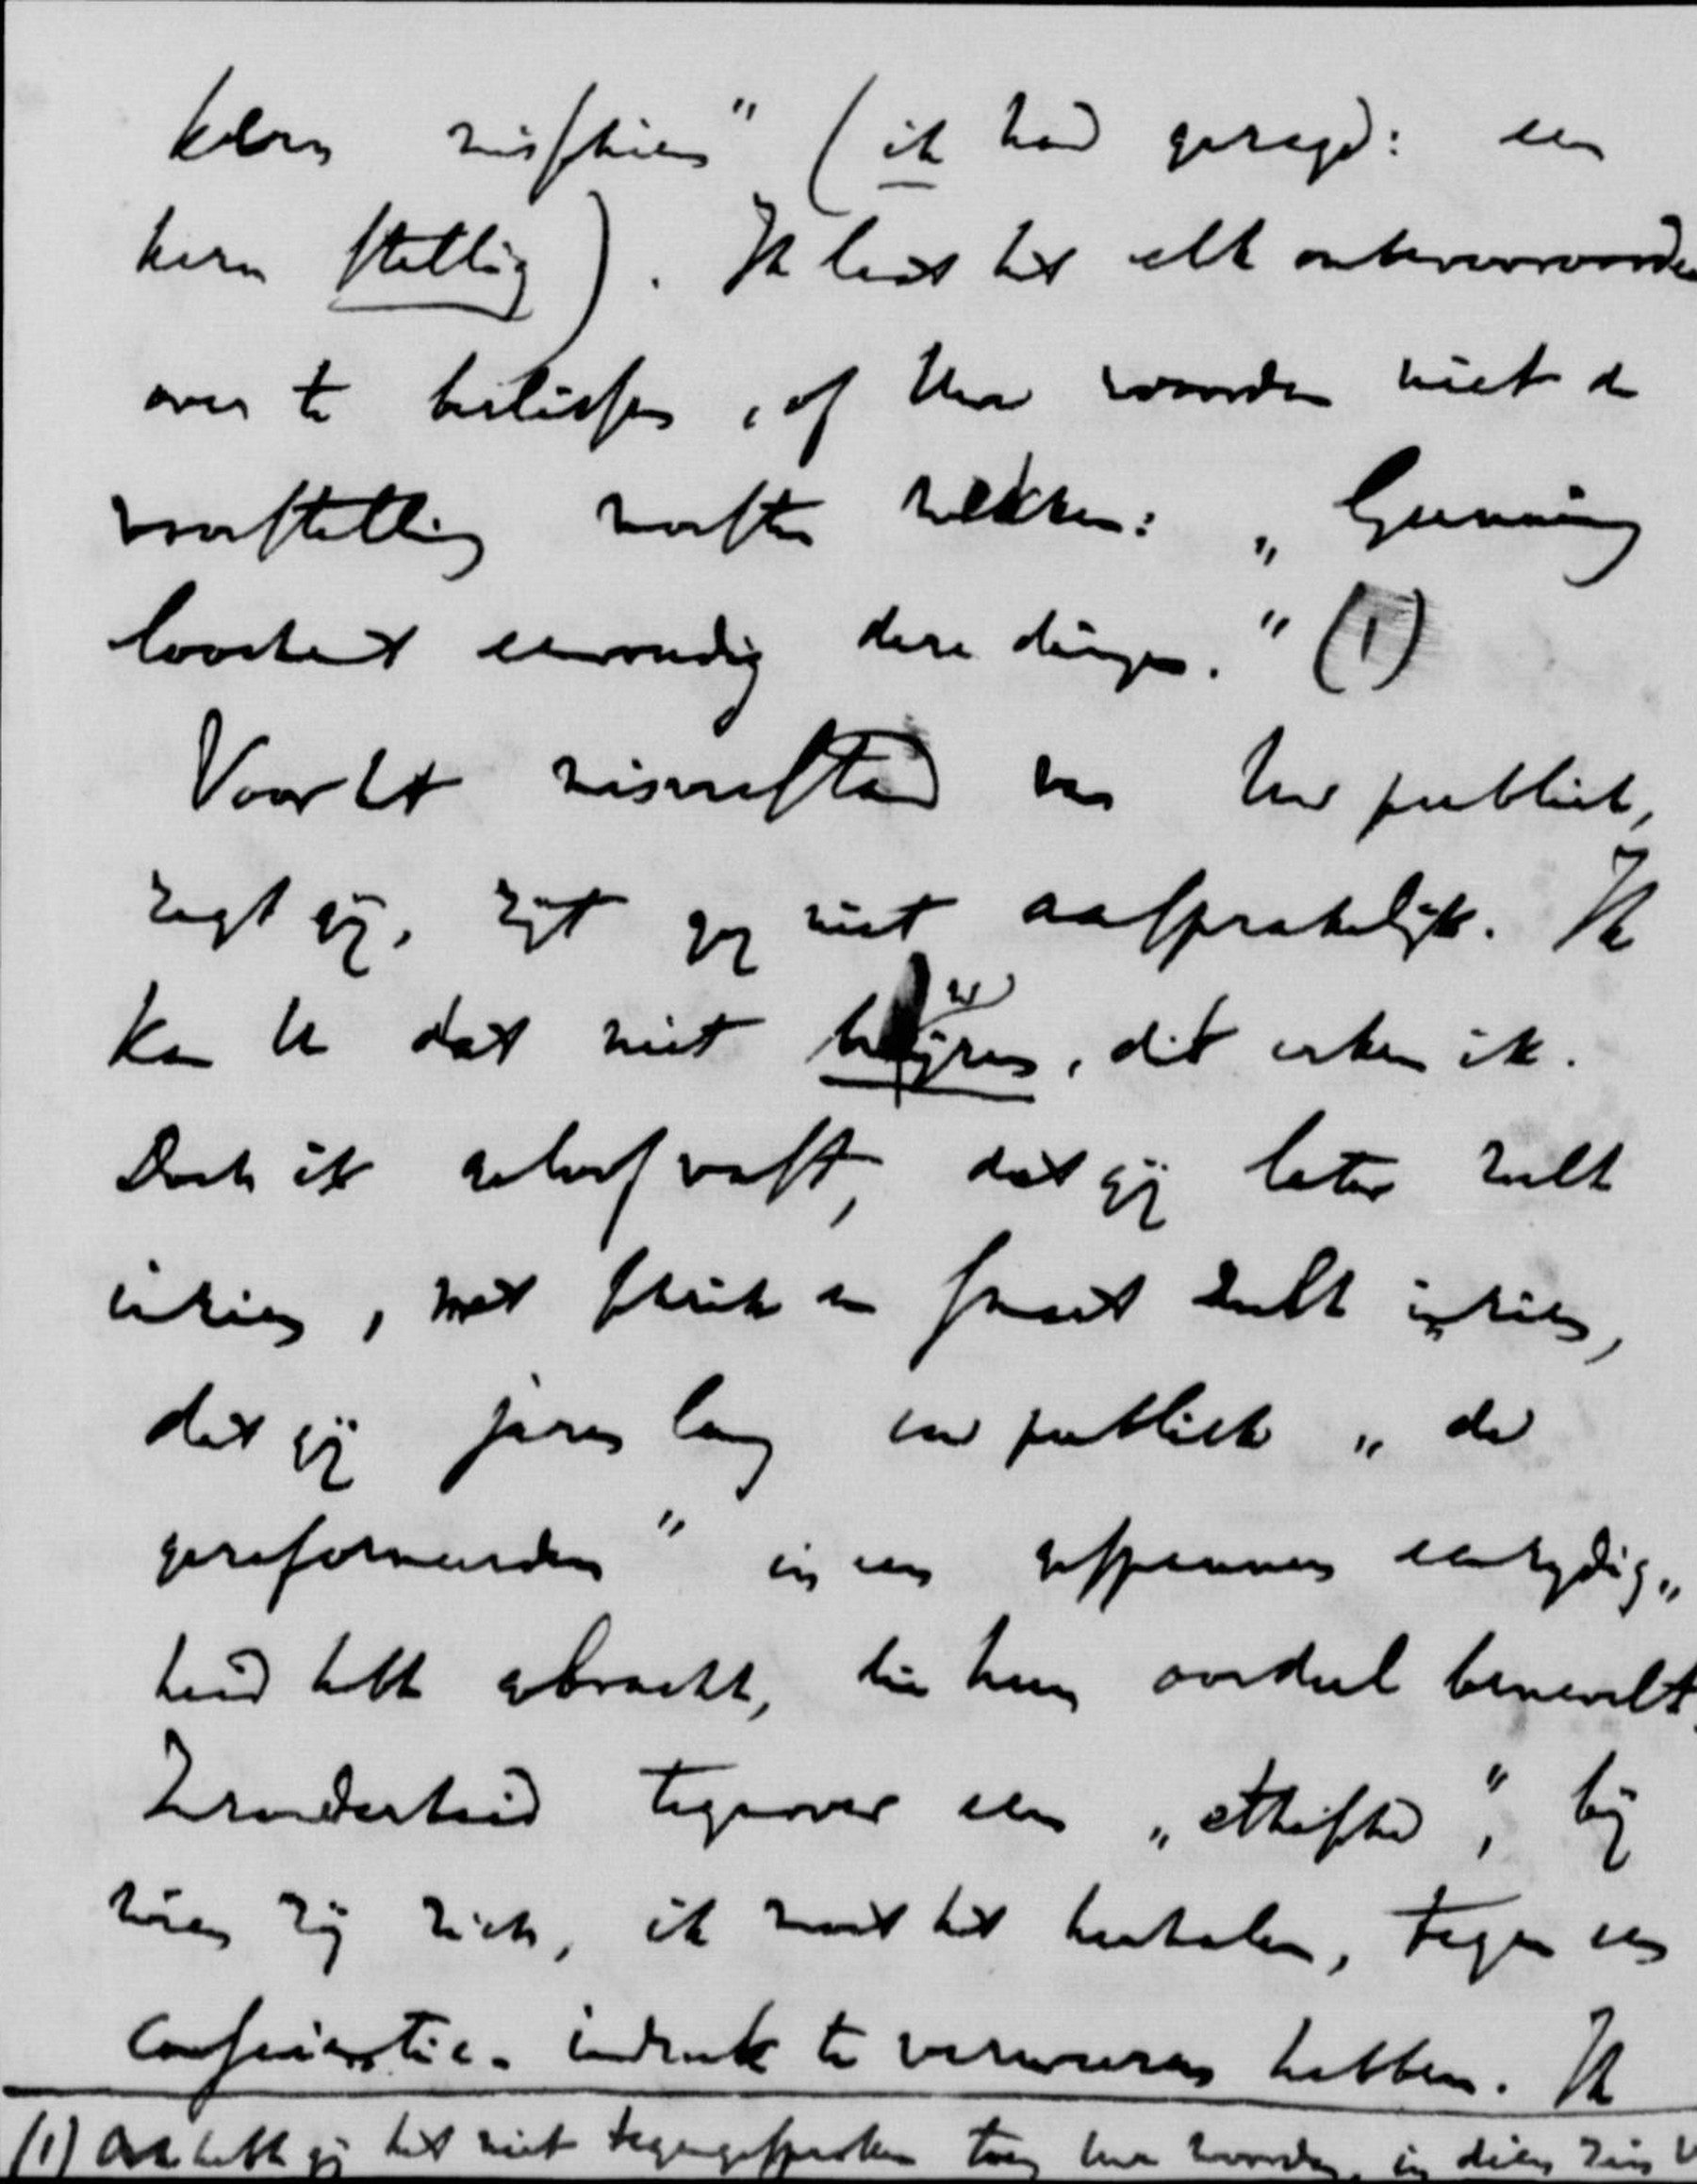 misschien" (ik had gezegd: een
kern stellig). Ik laat het elk onbevooroordee
over te beslissen, of Uw woorden niet de
voorstelling moesten wekken: „Gunning
loochent eenvoudig deze dingen." (1)
Voor het misverstand van Uw publiek,
zegt gij, zijt gij niet aansprakelijk. Ik
kan U dat niet bewijzen, dit erken ik.
Doch ik geloof vast, dat gij later zult
inzien, met schrik en smart zult inzien,
dat gij jaren lang uw publiek „de
gereformeerden" in een gespannen eenzijdig„
heid hebt gebracht, die hun oordeel benevelt.
Inzonderheid tegenover een „ethische", bij
wien zij zich, ik moet het herhalen, tegen een
conscientie-indruk te verweren hebben. Ik
(1) Ook hebt gij het niet tegengesproken toen Uw woorden, in dien zin